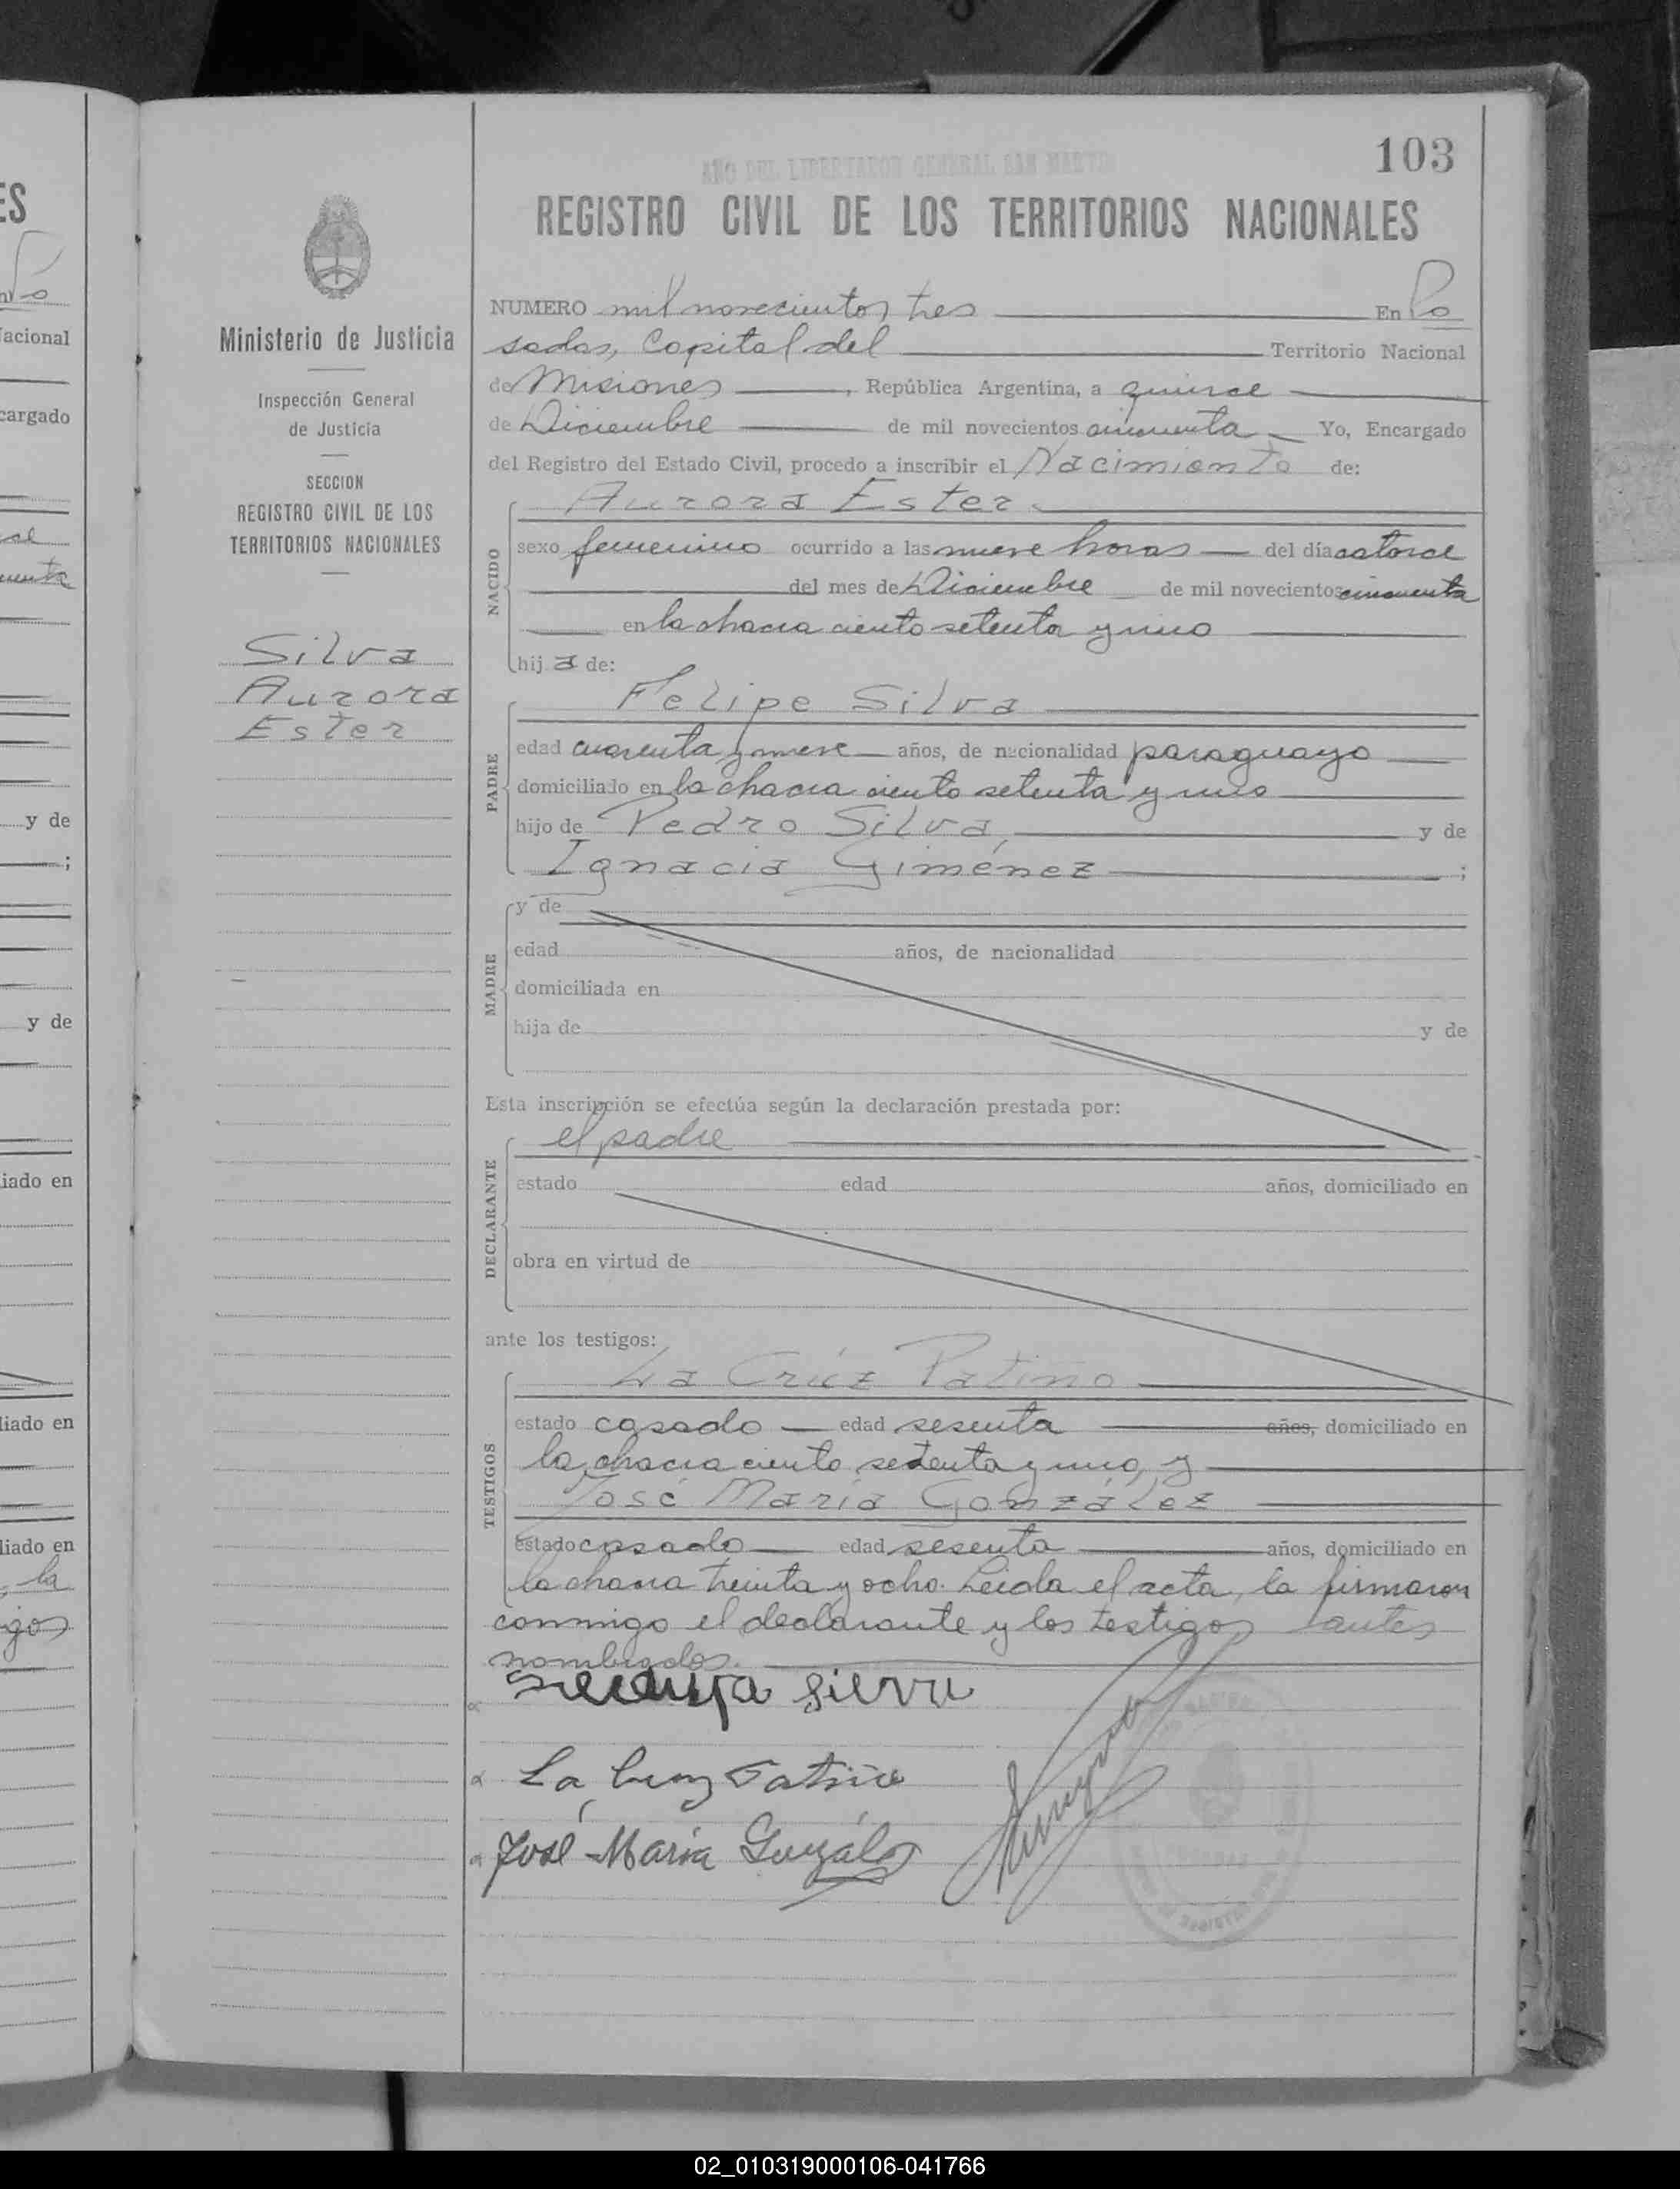 103
AÑO DEL LIBERTADOR GENERAL SAN MARTIN
REGISTRO CIVIL DE LOS TERRITORIOS NACIONALES
Ministerio de Justicia
Inspección General
de Justicia
SECCION
REGISTRO CIVIL DE LOS
TERRITORIOS NACIONALES
Silva
Aurora
Ester
NUMERO mil novecientos tres En Po
sadas, Capital del Territorio Nacional
de Misiones, República Argentina, a quince
de Diciembre de mil novecientos cincuenta Yo, Encargado
del Registro del Estado Civil, procedo a inscribir el Nacimiento de:
NACIDO
Aurora Ester
sexo femenino ocurrido a las nueve horas del día catorce
del mes de Diciembre de mil novecientos cincuenta
en la chacra ciento setenta y uno
hija de:
PADRE
Felipe Silva
edad cuarenta y nueve años, de nacionalidad paraguayo
domiciliado en la chacra ciento setenta y uno
hijo de Pedro Silva, y de
Ignacia Giménez ;
MADRE
y de
edad años, de nacionalidad
domiciliada en
hija de y de
Esta inscripción se efectúa según la declaración prestada por:
DECLARANTE
el padre
estado edad años, domiciliado en
obra en virtud de
ante los testigos:
TESTIGOS
La Crúz Patiño
estado casado edad sesenta años, domiciliado en
la chacra ciento setenta y uno, y
José María González
estado casado edad sesenta años, domiciliado en
la chacra treinta y ocho. Leida el acta, la firmaron
conmigo el declarante y los testigos antes
nombrados.
La Cruz Patiño
José María González
ES
Po
Nacional
cargado
y de
;
y de
liado en
liado en
liado en
la
igos
02_010319000106-041766